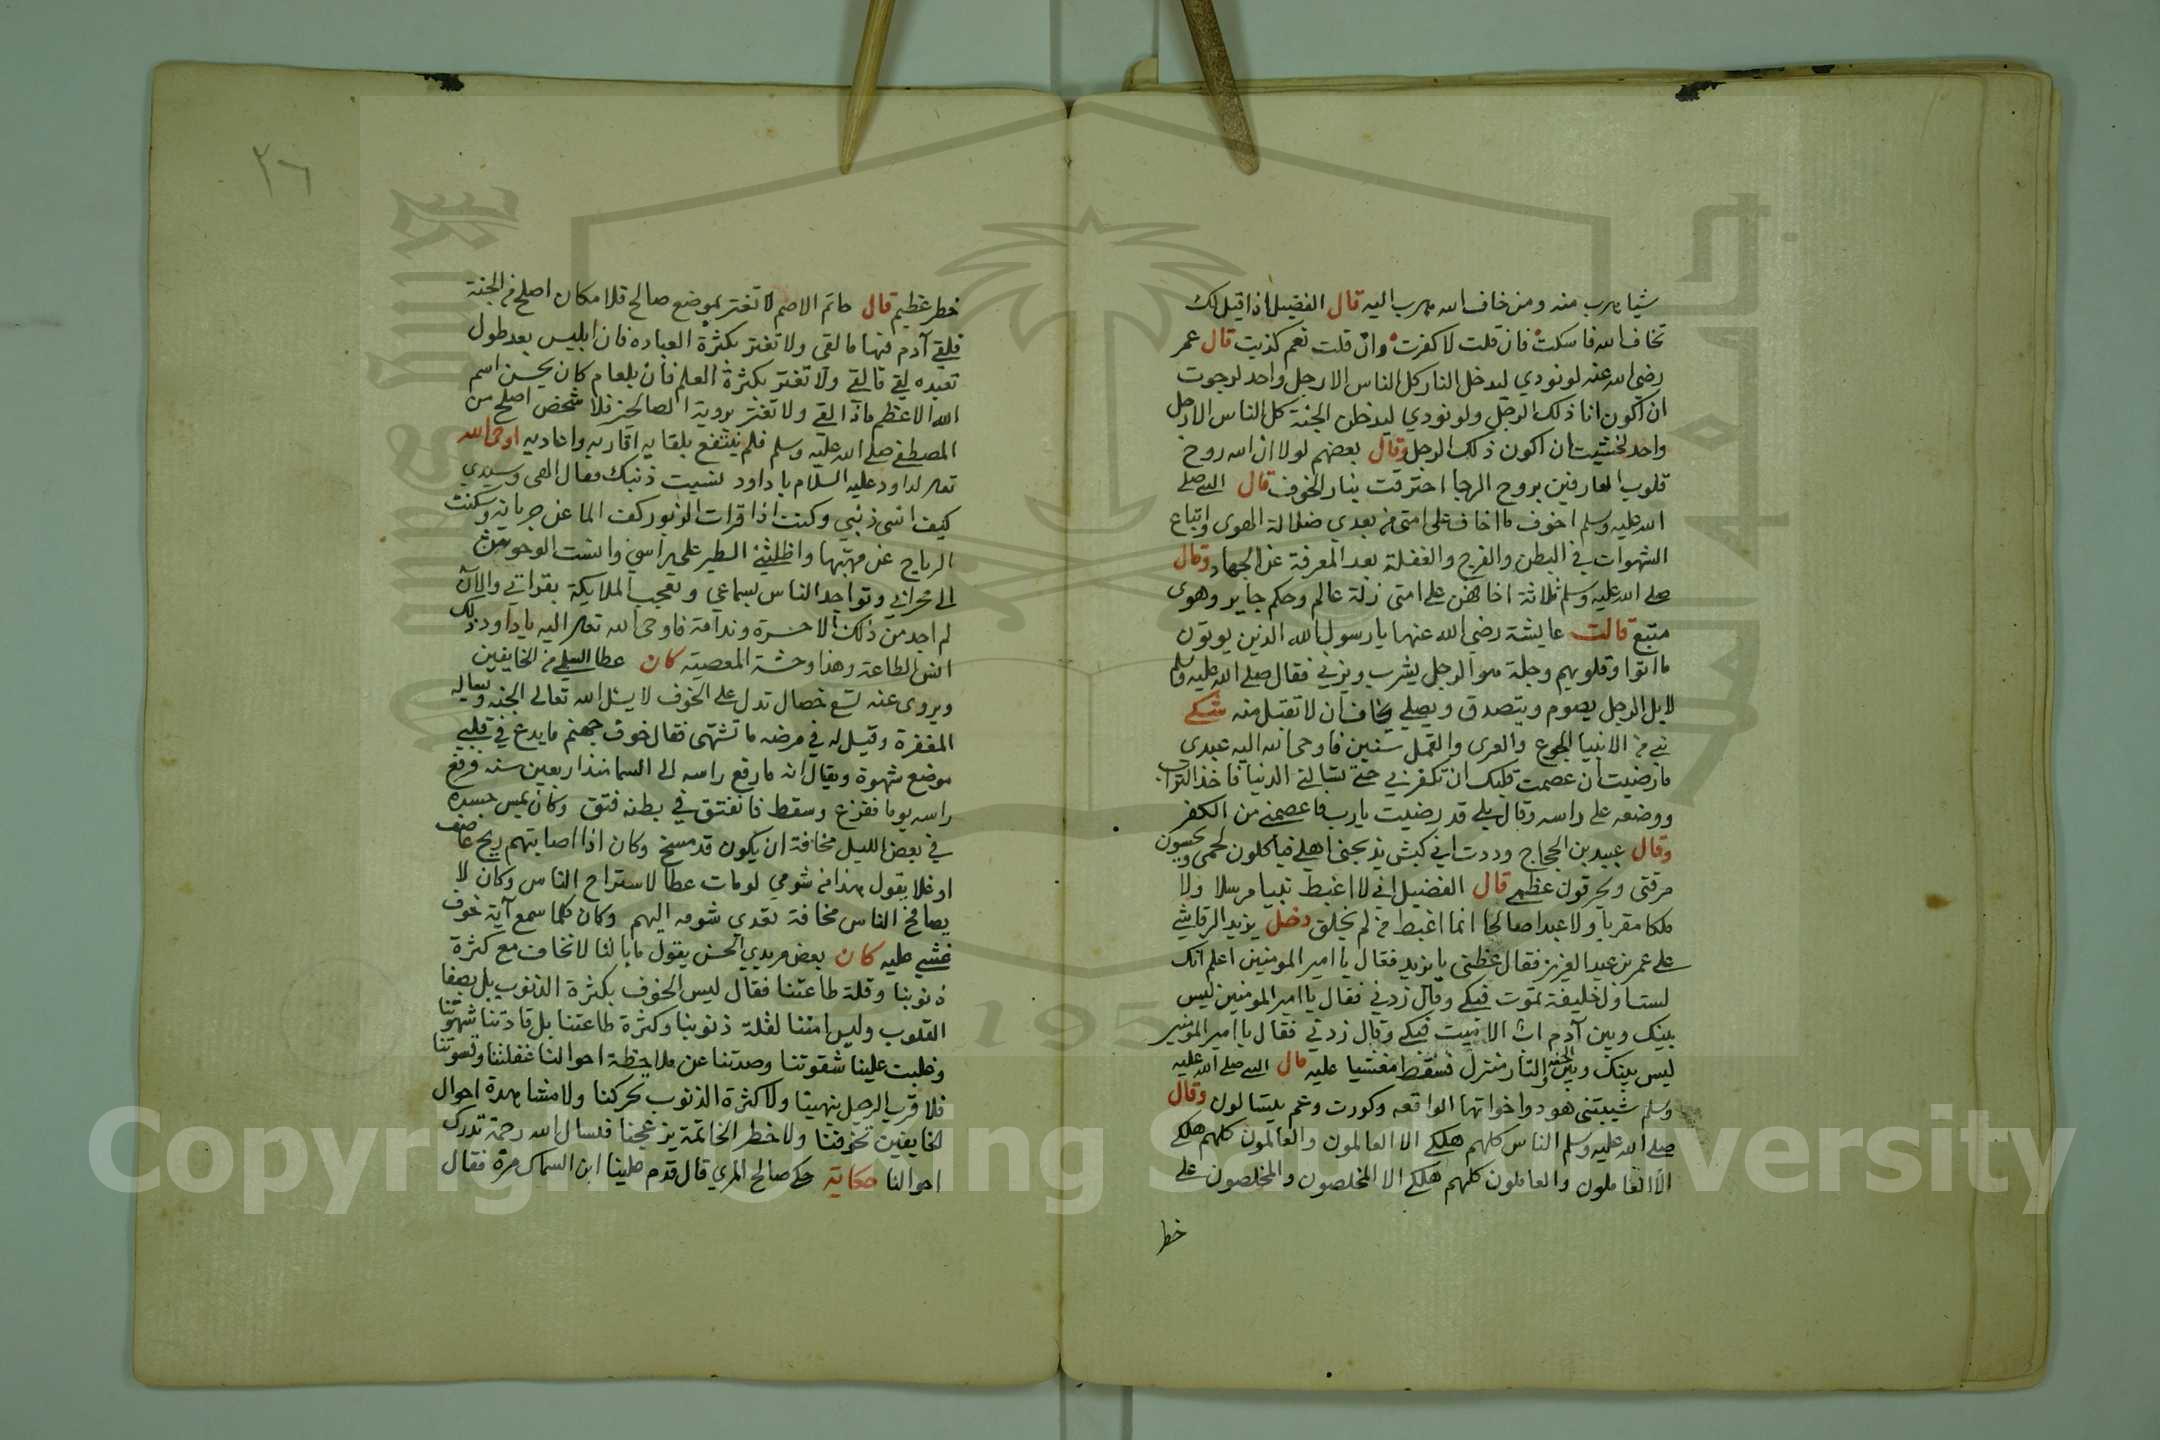 شيا يهرب منه ومن خاف الله يهرب اليه قال الفضيل اذا قيل لك
تخاف الله فاسكت فان قلت لا كفرت وان قلت نعم كذبت قال عمر
رضي الله عنه لو نودي ليدخل النار كل الناس الا رجل واحد لرجوت
ان اكون انا ذلك الرجل ولو نودي ليدخل الجنة كل الناس الا رجل
واحد لخشيت ان اكون ذلك الرجل وقال بعضهم لولا ان الله روح
قلوب العارفين بروح الرجا احترقت بنار الخوف قال النبي صلى
الله عليه وسلم اخوف ما اخاف على امتي من بعدي ضلالة الهوى واتباع
الشهوات في البطن والفرج والغفلة بعد المعرفة عن الجهاد وقال
صلى الله عليه وسلم ثلاثة اخافهن على امتي زلة عالم وحكم جاير وهوى
متبع قالت عايشة رضي الله عنها يا رسول الله الذين يوتون
ما اتوا وقلوبهم وجلة هو الرجل يشرب ويزني فقال صلى الله عليه وسلم
لا بل الرجل يصوم ويتصدق ويصلي يخاف ان لا تقبل منه شكى
نبي من الانبيا الجوع والعرى والقمل سنين فاوحى الله اليه عبدي
ما رضيت ان عصمت قلبك ان تكفر بي حتى تسالني الدنيا فاخذ التراب
ووضعه على راسه وقال بلى قد رضيت يا رب فاعصمني من الكفر
وقال عبيد بن الحجاج وددت اني كبش يذبحني اهلي فياكلون لحمي ويحسون
مرقتي ويحرقون عظمي قال الفضيل اني لا اغبط نبيا مرسلا ولا
ملكا مقربا ولا عبدا صالحا انما اغبط من لم يخلق دخل يزيد الرقاشي
على عمر بن عبد العزيز فقال عظني يا يزيد فقال يا امير المومنين اعلم انك
لست اول خليفة تموت فبكى وقال زدني فقال يا امير المومنين ليس
بينك وبين آدم اب الا ميت فبكى وقال زدني فقال يا امير المومنين
ليس بينك وبين الجنة والنار منزل فسقط مغشيا عليه قال النبي صلى الله عليه
وسلم شيبتني هود واخواتها الواقعه وكورت وعم يتسالون وقال
صلى الله عليه وسلم الناس كلهم هلكى الا العالمون والعالمون كلهم هلكى
الا العاملون والعاملون كلهم هلكى الا المخلصون والمخلصون على
خطر
٢٦
خطر عظيم قال حاتم الاصم لا تغتر بموضع صالح فلا مكان اصلح من الجنة
فلقي آدم فيها ما لقي ولا تغتر بكثرة العباده فان ابليس بعد طول
تعبده لقي ما لقي ولا تغتر بكثرة العلم فان بلعام كان يحسن اسم
الله الاعظم ماذا لقي ولا تغتر بروية الصالحين فلا شخص اصلح من
المصطفى صلى الله عليه وسلم فلم ينتفع بلقايه اقاربه واعاديه اوحى الله
تعالى لداود عليه السلام يا داود نسيت ذنبك فقال الهي وسيدي
كيف انسى ذنبي وكنت اذا قرات الزبور كف الما عن جريانه وسكنت
الرياح عن مهبها واظلتني الطير على راسي وانست الوحوش
الى محرابي وتواجد الناس بسماعي وتعجب الملايكة بقراتي والآن
لم اجد من ذلك الا حسرة وندامة فاوحى الله تعالى اليه يا داود ذلك
انس الطاعة وهذا وحشة المعصيه كان عطا السلمي من الخايفين
ويروى عنه تسع خصال تدل على الخوف لا يسل الله تعالى الجنه ويساله
المغفرة وقيل له في مرضه ما تشتهى فقال خوف جهنم ما يدع في قلبي
موضع شهوة ويقال انه ما رفع راسه الى السما منذ اربعين سنه فرفع
راسه يوما ففزع وسقط فانفتق في بطنه فتق وكان يمس جسده
في بعض الليل مخافة ان يكون قد مسخ وكان اذا اصابتهم ريح عاصف
او غلا يقول هذا من شومي لو مات عطا لاستراح الناس وكان لا
يصافح الناس مخافة تعدي شومه اليهم وكان كلما سمع آية خوف
غشي عليه كان بعض مريدي الحسن يقول ما بالنا لا نخاف مع كثرة
ذنوبنا وقلة طاعتنا فقال ليس الخوف بكثرة الذنوب بل بصفا
القلوب وليس امننا لقلة ذنوبنا وكثرة طاعتنا بل قادتنا شهوتنا
وغلبت علينا شقوتنا وصدتنا عن ملاحظة احوالنا غفلتنا وقسوتنا
فلا قرب الرحيل ينهينا ولا كثرة الذنوب تحركنا ولا مشاهدة احوال
الخايفين تخوفنا ولا خطر الخاتمة يزعجنا فنسال الله رحمة تدرك
احوالنا حكاية حكى صالح المري قال قدم علينا ابن السماك مرة فقال
Copyright © King Saud University
1957